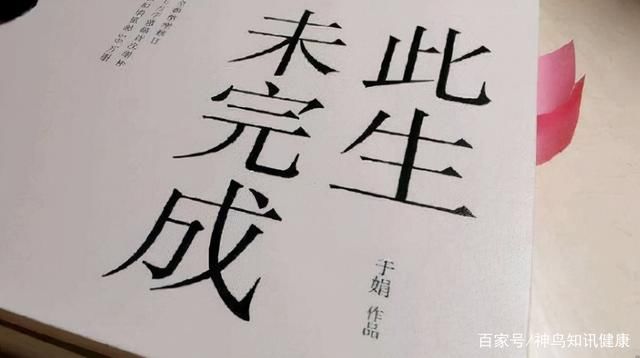 此生
未完成
于娟 作品
百家号/神鸟知讯健康